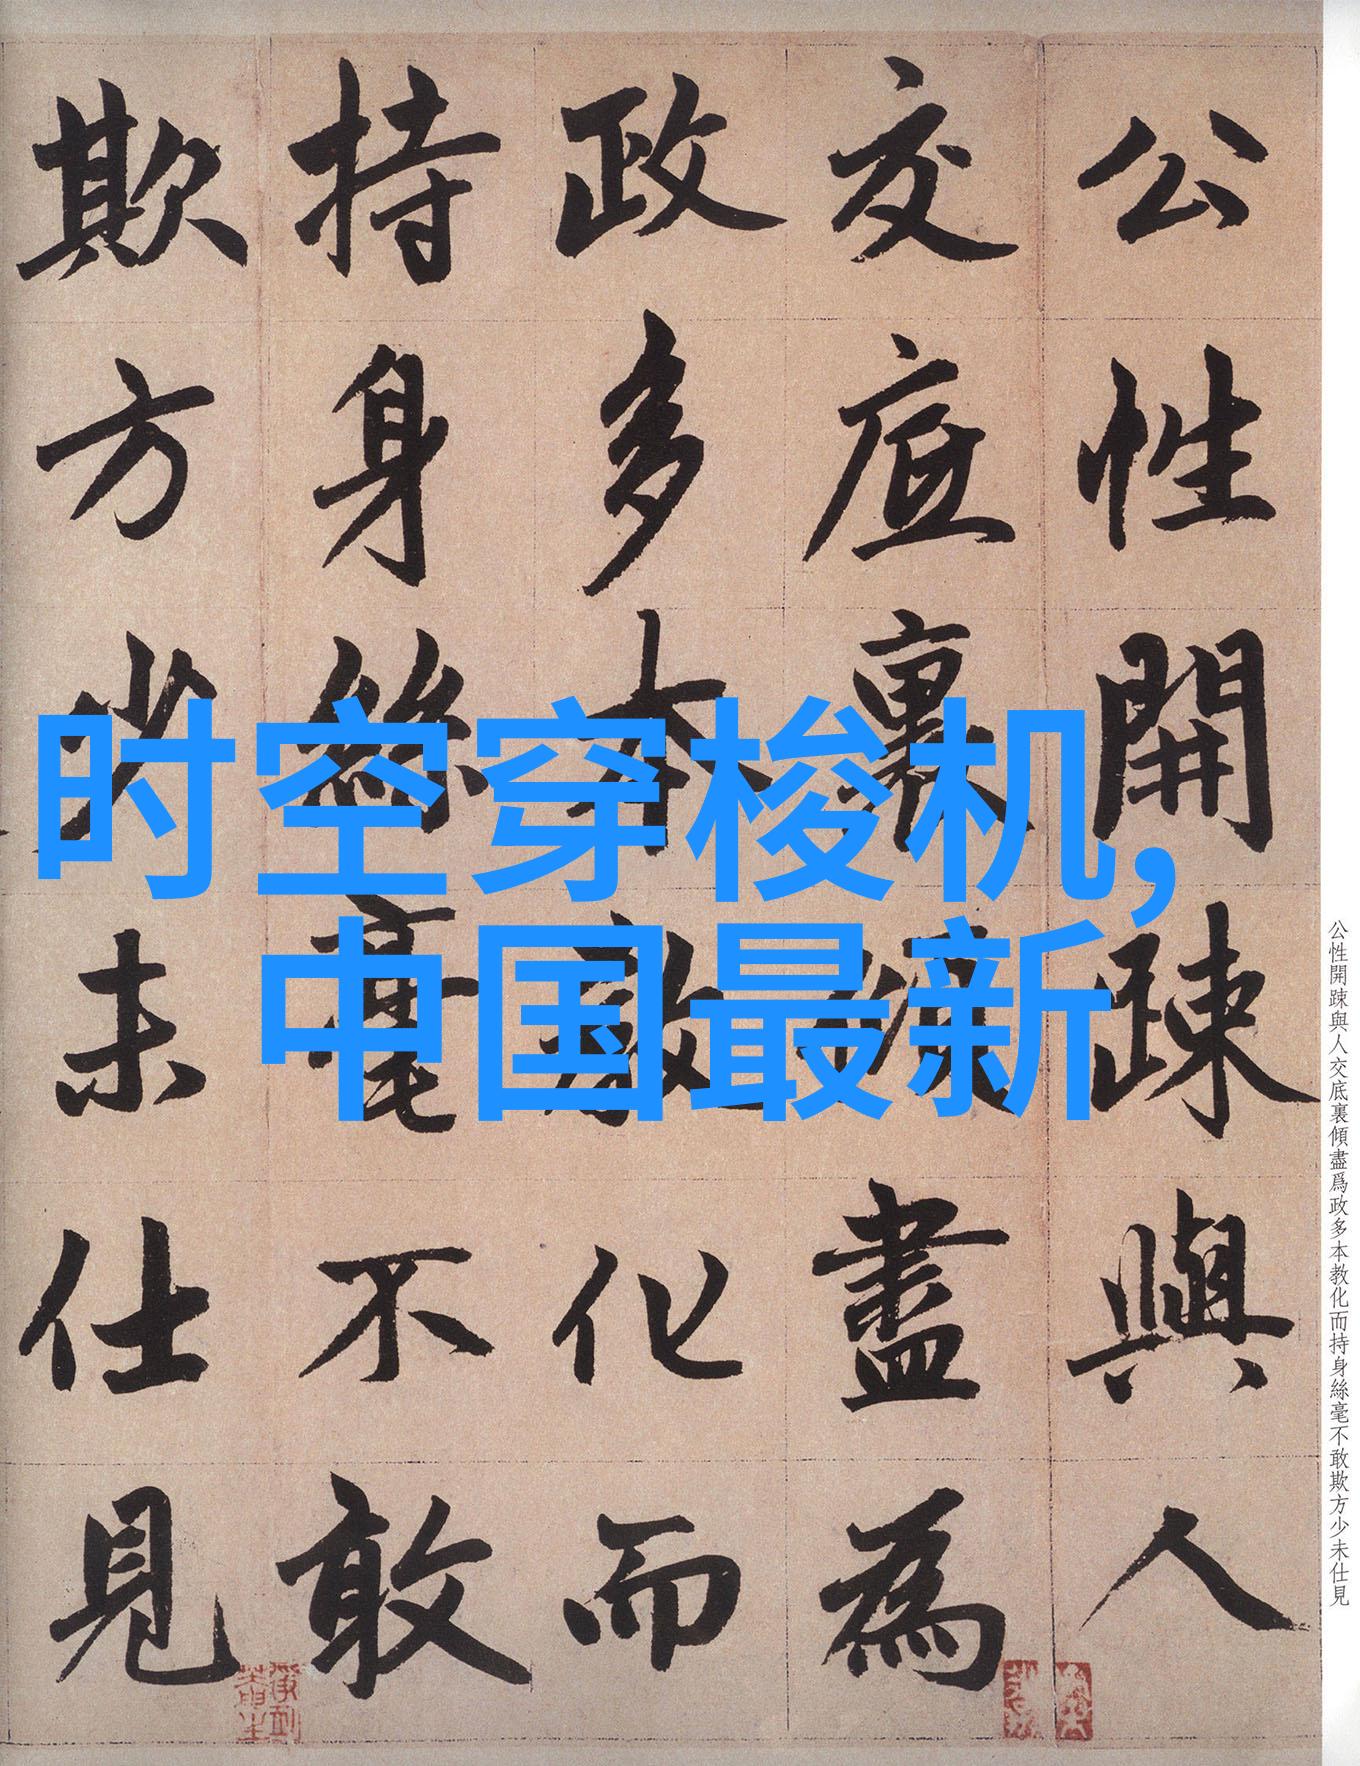 公性開踈與人
交底裏傾盡為
政多本教化而
持身絲毫不敢
欺方少未仕見
时空穿梭机,
中国最新
公性開踈與人交底裏傾盡爲政多本教化而持身絲毫不敢欺方少未仕見